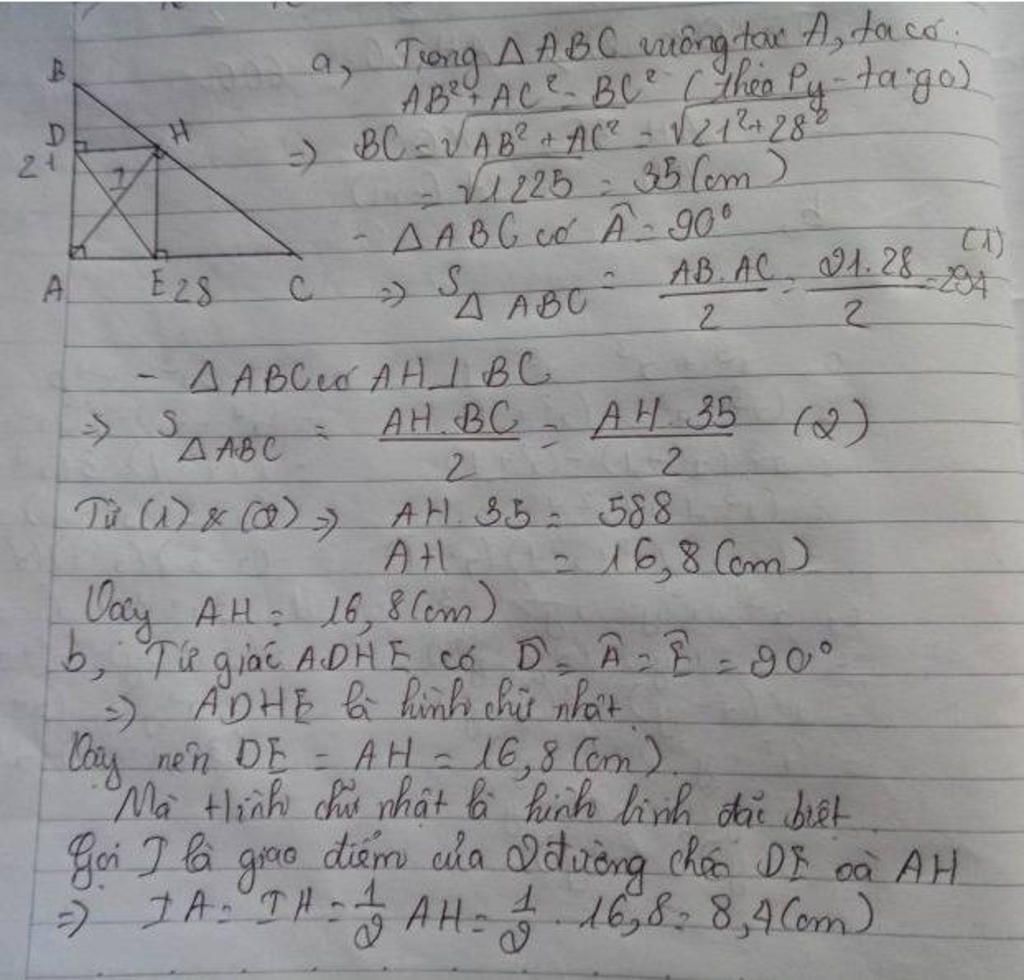 a, Trong Δ ABC vuông tại A, ta có.
AB² + AC² = BC² (theo Py-ta-go)
⇒ BC = √AB² + AC² = √21² + 28²
= √1225 = 35 (cm)
- Δ ABC có Â = 90°
⇒ S Δ ABC = AB. AC / 2 = 21. 28 / 2 = 294 (1)
B
D
H
21
I
A
E
28
C
- Δ ABC có AH ⊥ BC
⇒ S Δ ABC = AH. BC / 2 = AH. 35 / 2 (2)
Từ (1) & (2) ⇒ AH. 35 = 588
AH = 16,8 (cm)
Vậy AH = 16,8 (cm)
b, Tứ giác ADHE có D̂ = Â = Ê = 90°
⇒ ADHE là hình chữ nhật
Vậy nên DE = AH = 16,8 (cm).
Mà Hình chữ nhật là hình bình đặc biệt
Gọi I là giao điểm của 2 đường chéo DE và AH
⇒ IA = IH = 1/2 AH = 1/2 . 16,8 = 8,4 (cm)